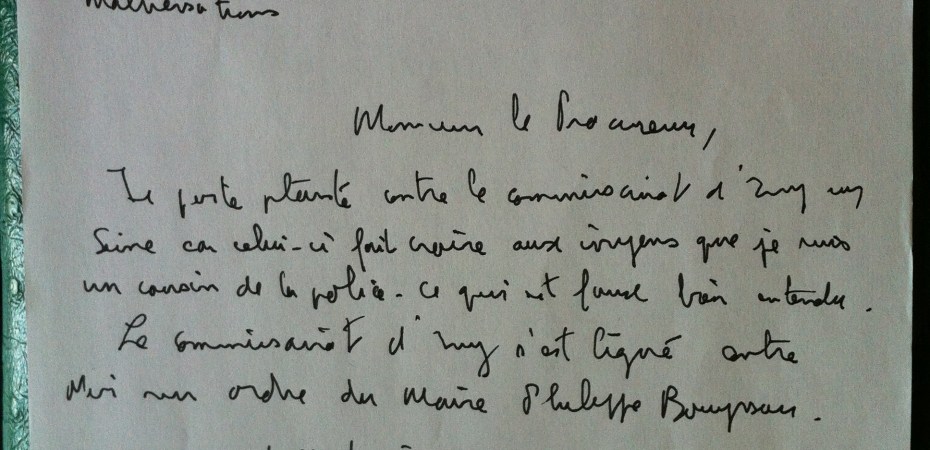 Malversations
Monsieur le Procureur,
Je porte plainte contre le commissariat d'Ivry sur
Seine car celui-ci fait croire aux citoyens que je suis
un cousin de la police - ce qui est faux bien entendu.
Le commissariat d'Ivry s'est ligué contre
Moi sur ordre du Maire Philippe